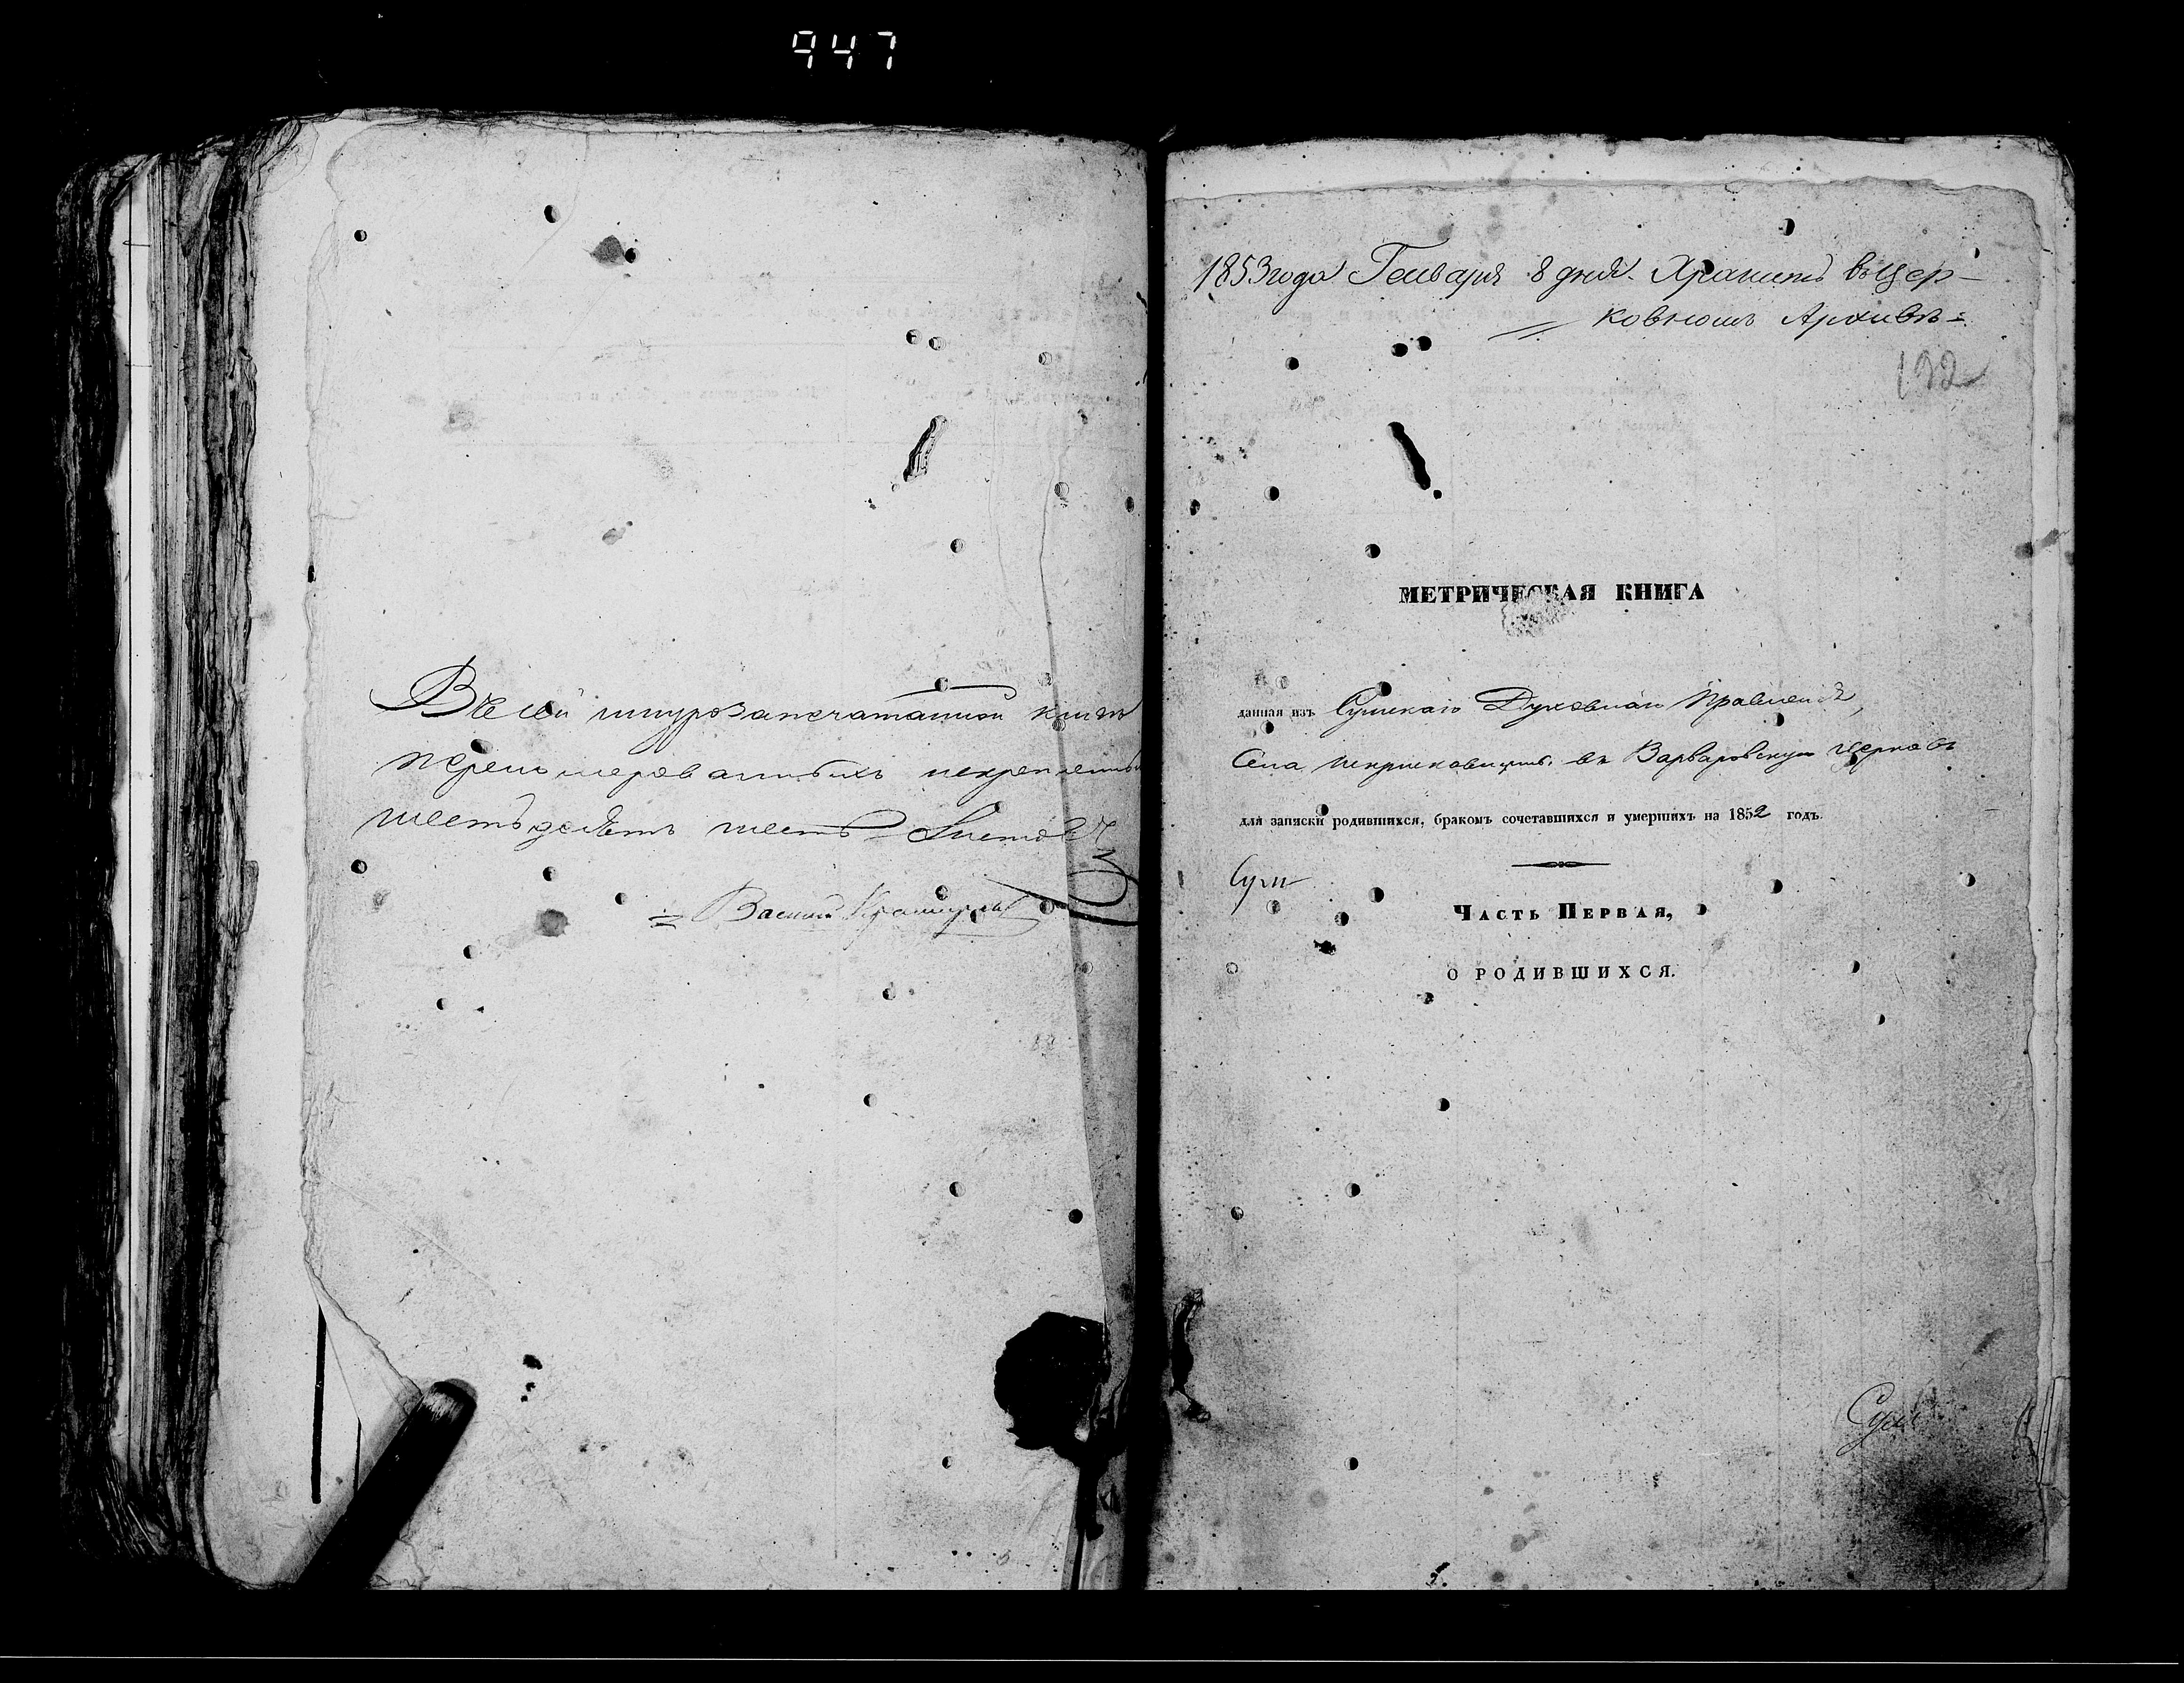 947
Въ сей шнурозапечатанной книгѣ
перенумерованныхъ
шестьдесятъ шесть листовъ
Василій
1853 года Генваря 8 дня. Хранить въ Цер-
ковномъ Архивѣ
192
МЕТРИЧЕСКАЯ КНИГА
данная изъ Сумскаго Духовнаго Правленія,
Села въ Варваровскую Церковь
для записки родившихся, бракомъ сочетавшихся и умершихъ на 1852 годъ.
ЧАСТЬ ПЕРВАЯ,
О РОДИВШИХСЯ.